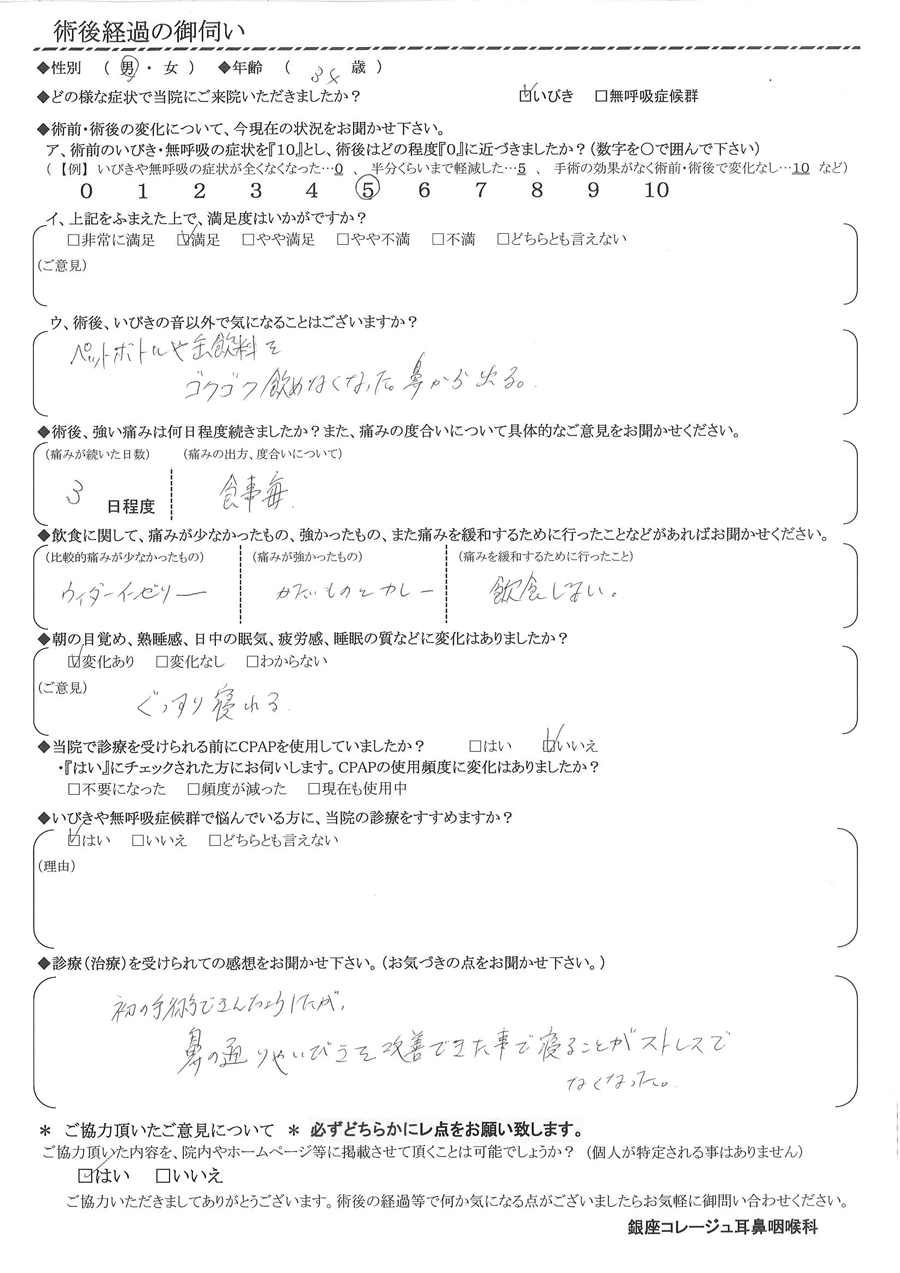 術後経過の御伺い
◆性別 （ 男 ・ 女 ） ◆年齢 （ 34 歳 ）
◆どの様な症状で当院にご来院いただきましたか？ ☑いびき □無呼吸症候群
◆術前・術後の変化について、今現在の状況をお聞かせ下さい。
ア、術前のいびき・無呼吸の症状を『10』とし、術後はどの程度『0』に近づきましたか？（数字を○で囲んで下さい）
（ 【例】 いびきや無呼吸の症状が全くなくなった…0 、 半分くらいまで軽減した…5 、 手術の効果がなく術前・術後で変化なし…10 など）
0 1 2 3 4 5 6 7 8 9 10
イ、上記をふまえた上で、満足度はいかがですか？
□非常に満足 ☑満足 □やや満足 □やや不満 □不満 □どちらとも言えない
（ご意見）
ウ、術後、いびきの音以外で気になることはございますか？
ペットボトルや缶飲料を
ゴクゴク飲めなくなった。鼻から出る。
◆術後、強い痛みは何日程度続きましたか？また、痛みの度合いについて具体的なご意見をお聞かせください。
（痛みが続いた日数） （痛みの出方、度合いについて）
3 日程度 食事毎
◆飲食に関して、痛みが少なかったもの、強かったもの、また痛みを緩和するために行ったことなどがあればお聞かせください。
（比較的痛みが少なかったもの） （痛みが強かったもの） （痛みを緩和するために行ったこと）
ウイダーインゼリー かたいものとカレー 飲食しない。
◆朝の目覚め、熟睡感、日中の眠気、疲労感、睡眠の質などに変化はありましたか？
☑変化あり □変化なし □わからない
（ご意見）
ぐっすり寝れる
◆当院で診療を受けられる前にCPAPを使用していましたか？ □はい ☑いいえ
・『はい』にチェックされた方にお伺いします。CPAPの使用頻度に変化はありましたか？
□不要になった □頻度が減った □現在も使用中
◆いびきや無呼吸症候群で悩んでいる方に、当院の診療をすすめますか？
☑はい □いいえ □どちらとも言えない
（理由）
◆診療（治療）を受けられての感想をお聞かせ下さい。（お気づきの点をお聞かせ下さい。）
初の手術できんちょうしたが、
鼻の通りやいびきを改善できた事で寝ることがストレスで
なくなった。
＊ ご協力頂いたご意見について ＊ 必ずどちらかにレ点をお願い致します。
ご協力頂いた内容を、院内やホームページ等に掲載させて頂くことは可能でしょうか？ （個人が特定される事はありません）
☑はい □いいえ
ご協力いただきましてありがとうございます。術後の経過等で何か気になる点がございましたらお気軽に御問い合わせください。
銀座コレージュ耳鼻咽喉科